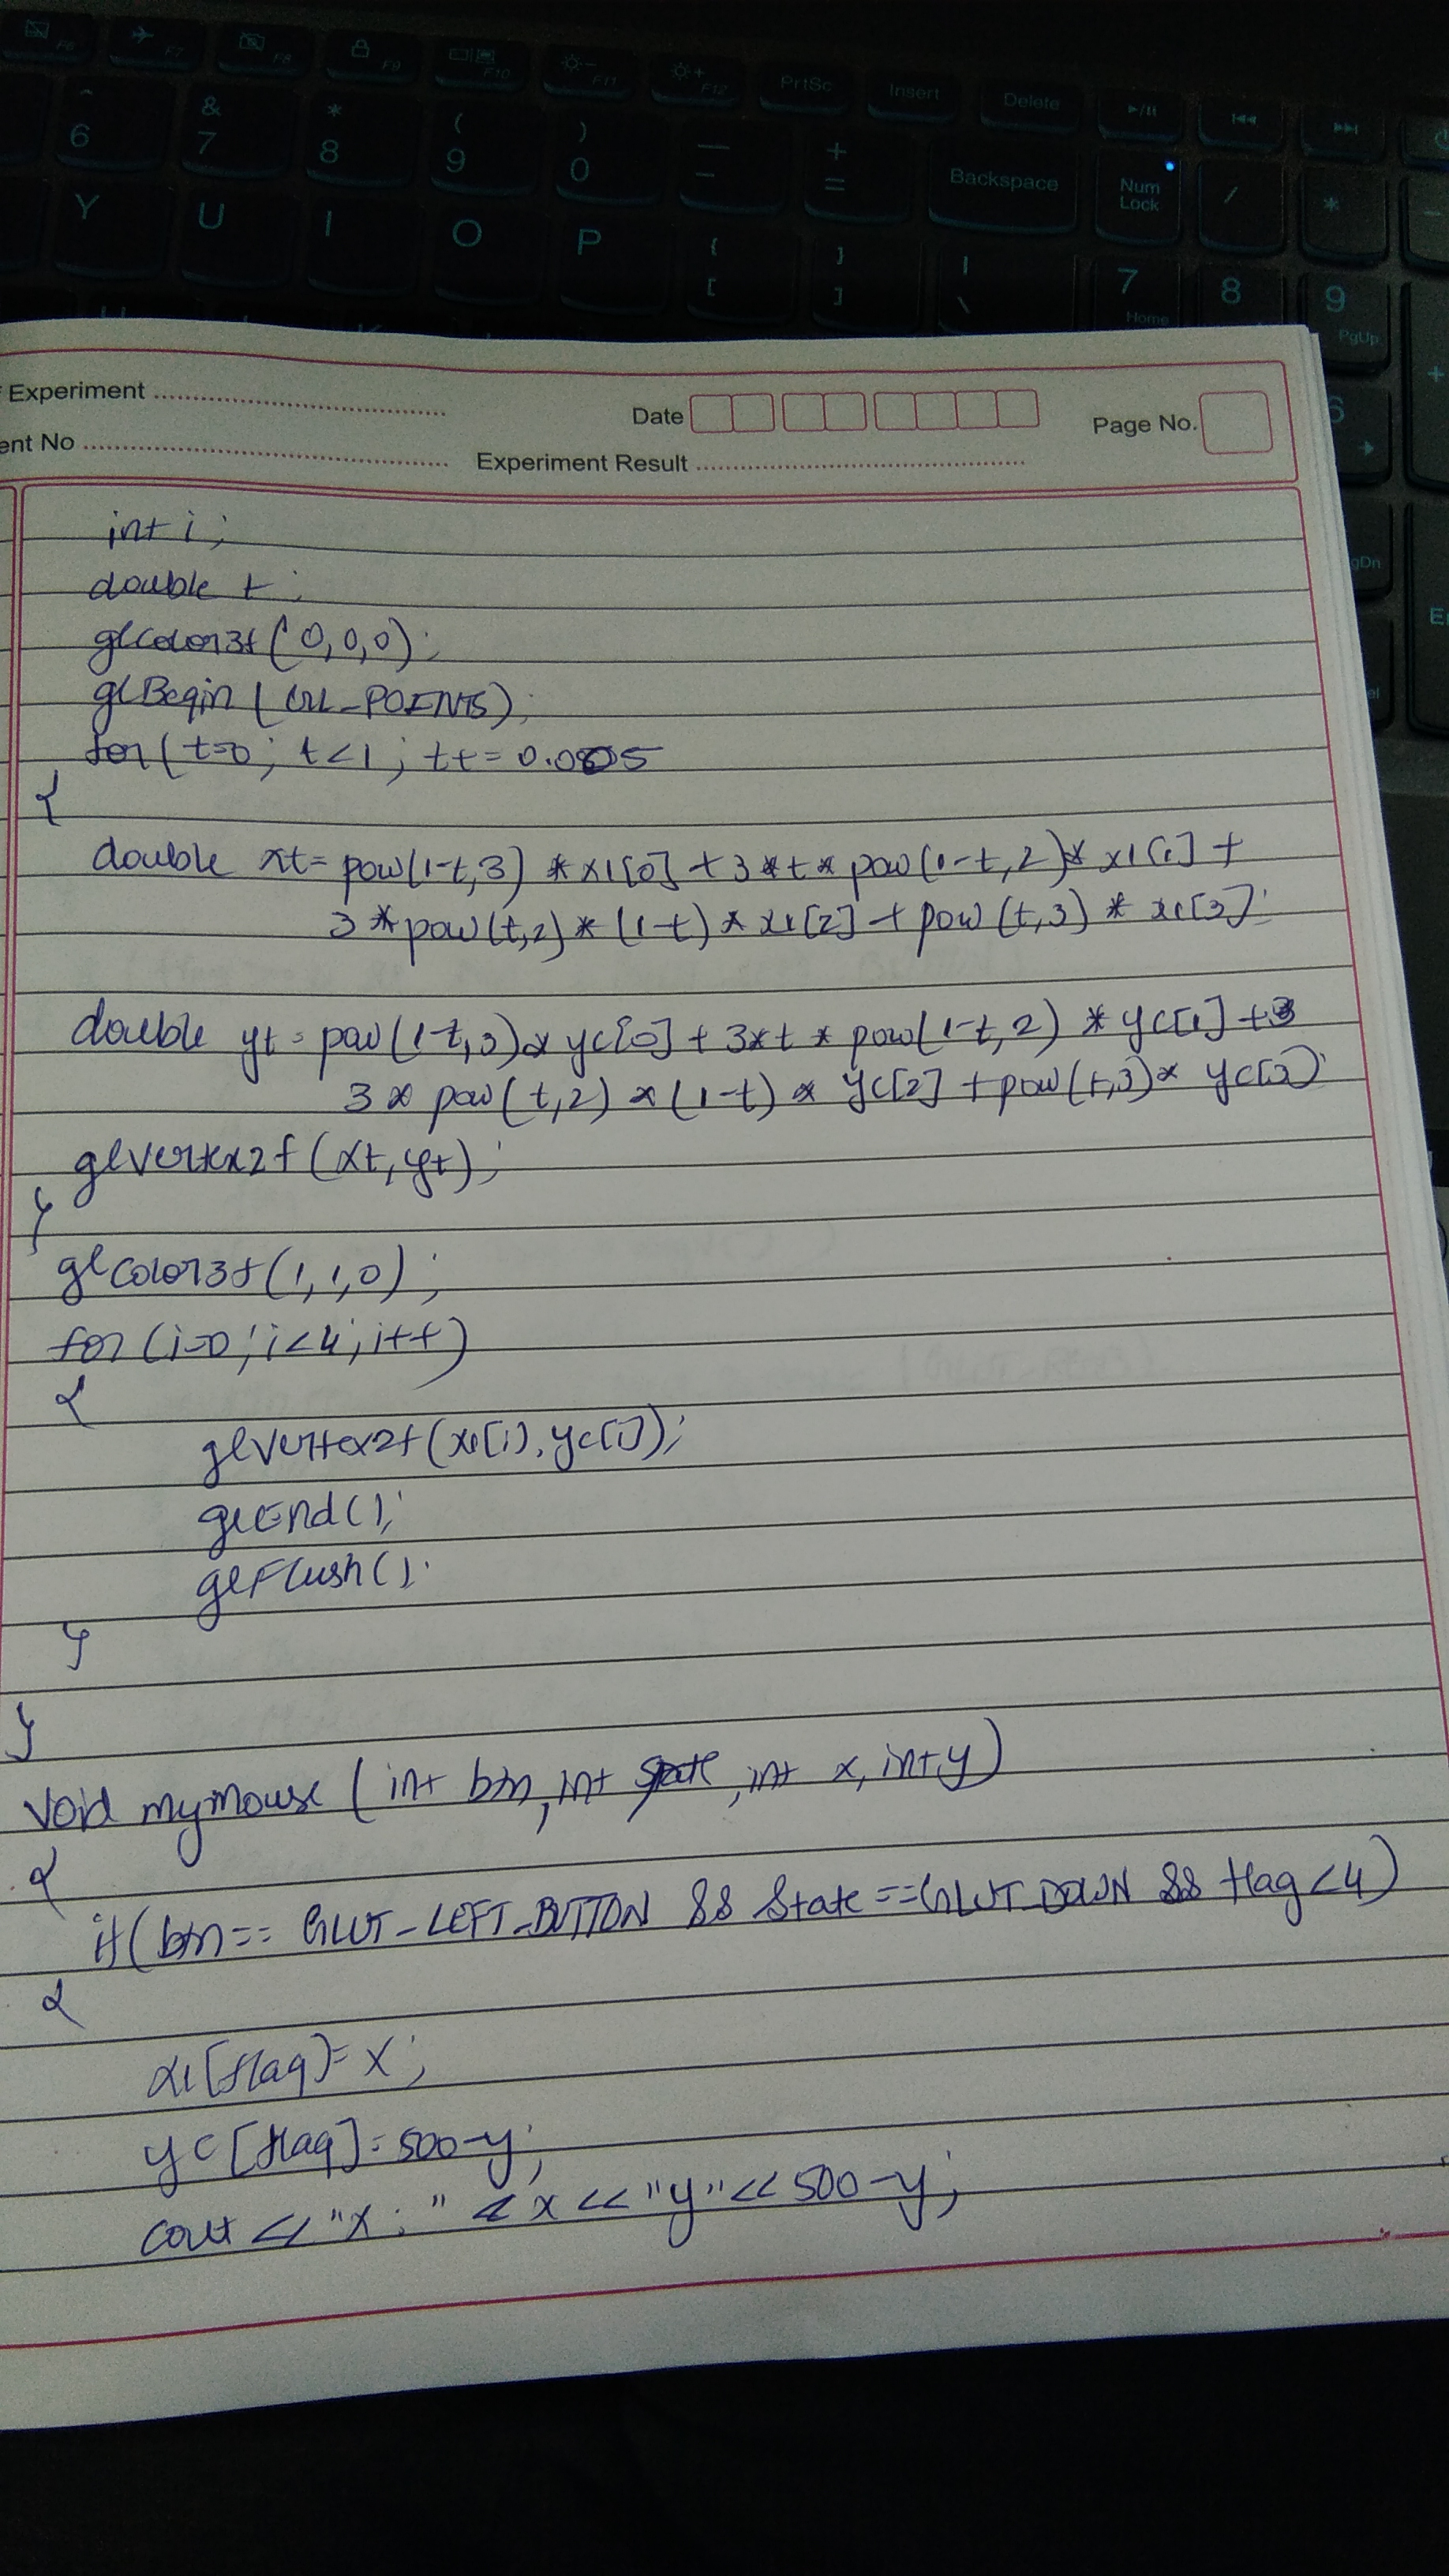 F6 F7 F8 F9 F10 F11 F12 PrtSc Insert Delete
^ & * ( ) — +
6 7 8 9 0 - = Backspace Num Lock / *
Y U I O P { [ } ] | \ 7 Home 8 9 PgUp
Experiment
Date
Page No.
ent No
Experiment Result
int i;
double t;
glColor3f(0,0,0);
glBegin(GL_POINTS);
for(t=0; t<1; t+=0.0005
{
double xt= pow(1-t,3) * x1[0] + 3*t* pow(1-t,2)* x1[1] +
3*pow(t,2)*(1-t)*x1[2]+pow(t,3)* x1[3];
double yt= pow(1-t,3)* yc[0] + 3*t* pow(1-t,2) *yc[1] +3
3* pow(t,2)*(1-t)* yc[2] +pow(t,3)* yc[3];
glVertex2f(xt,yt);
}
glColor3f(1,1,0);
for(i=0;i<4;i++)
{
glVertex2f(x1[i],yc[i]);
glEnd();
glFlush();
}
}
void mymouse (int btn, int state, int x, int y)
{
if(btn== GLUT_LEFT_BUTTON && State==GLUT_DOWN && flag<4)
{
x1[flag]=x;
yc[flag]=500-y;
cout <<"x:" <<x<<"y"<<500-y;